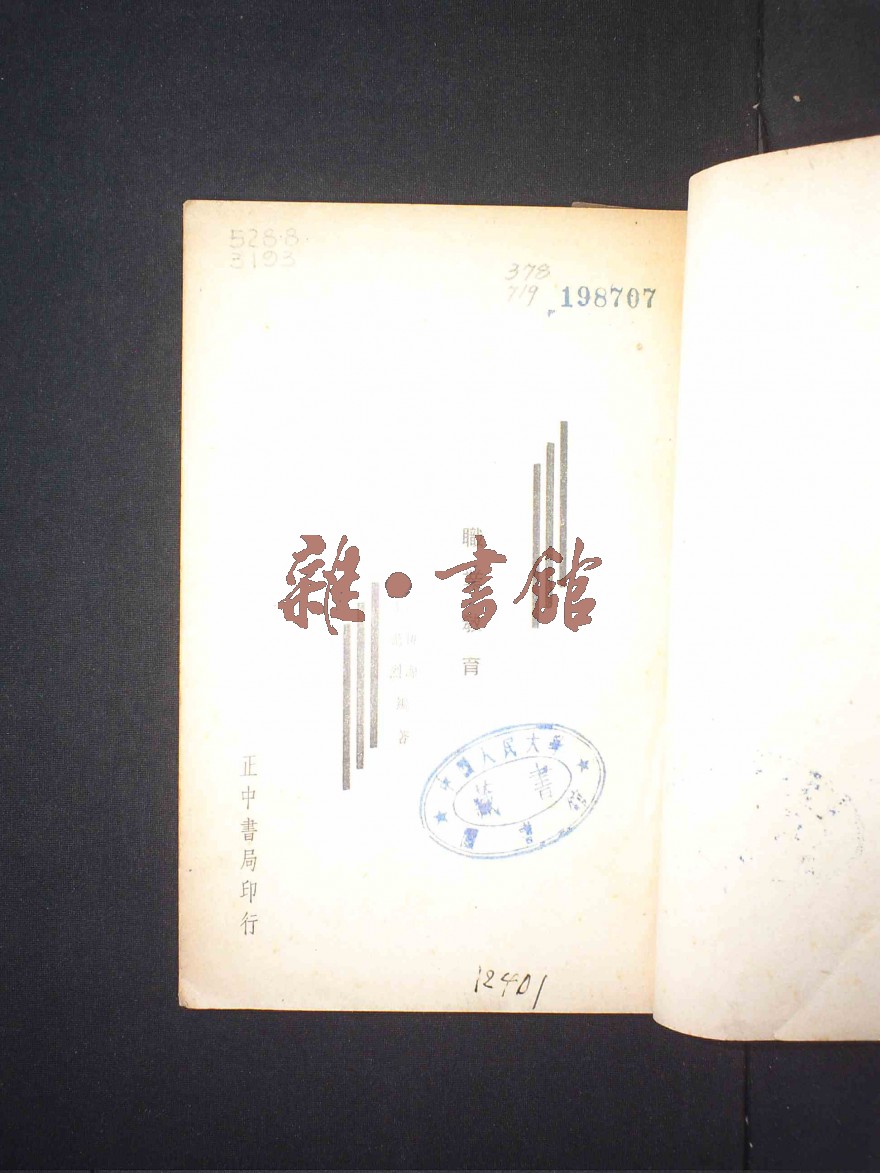 528.8
3193
378
719
198707
職業教育
著
正中書局印行
雜·書館
中國人民大學
圖書館
藏書
12401